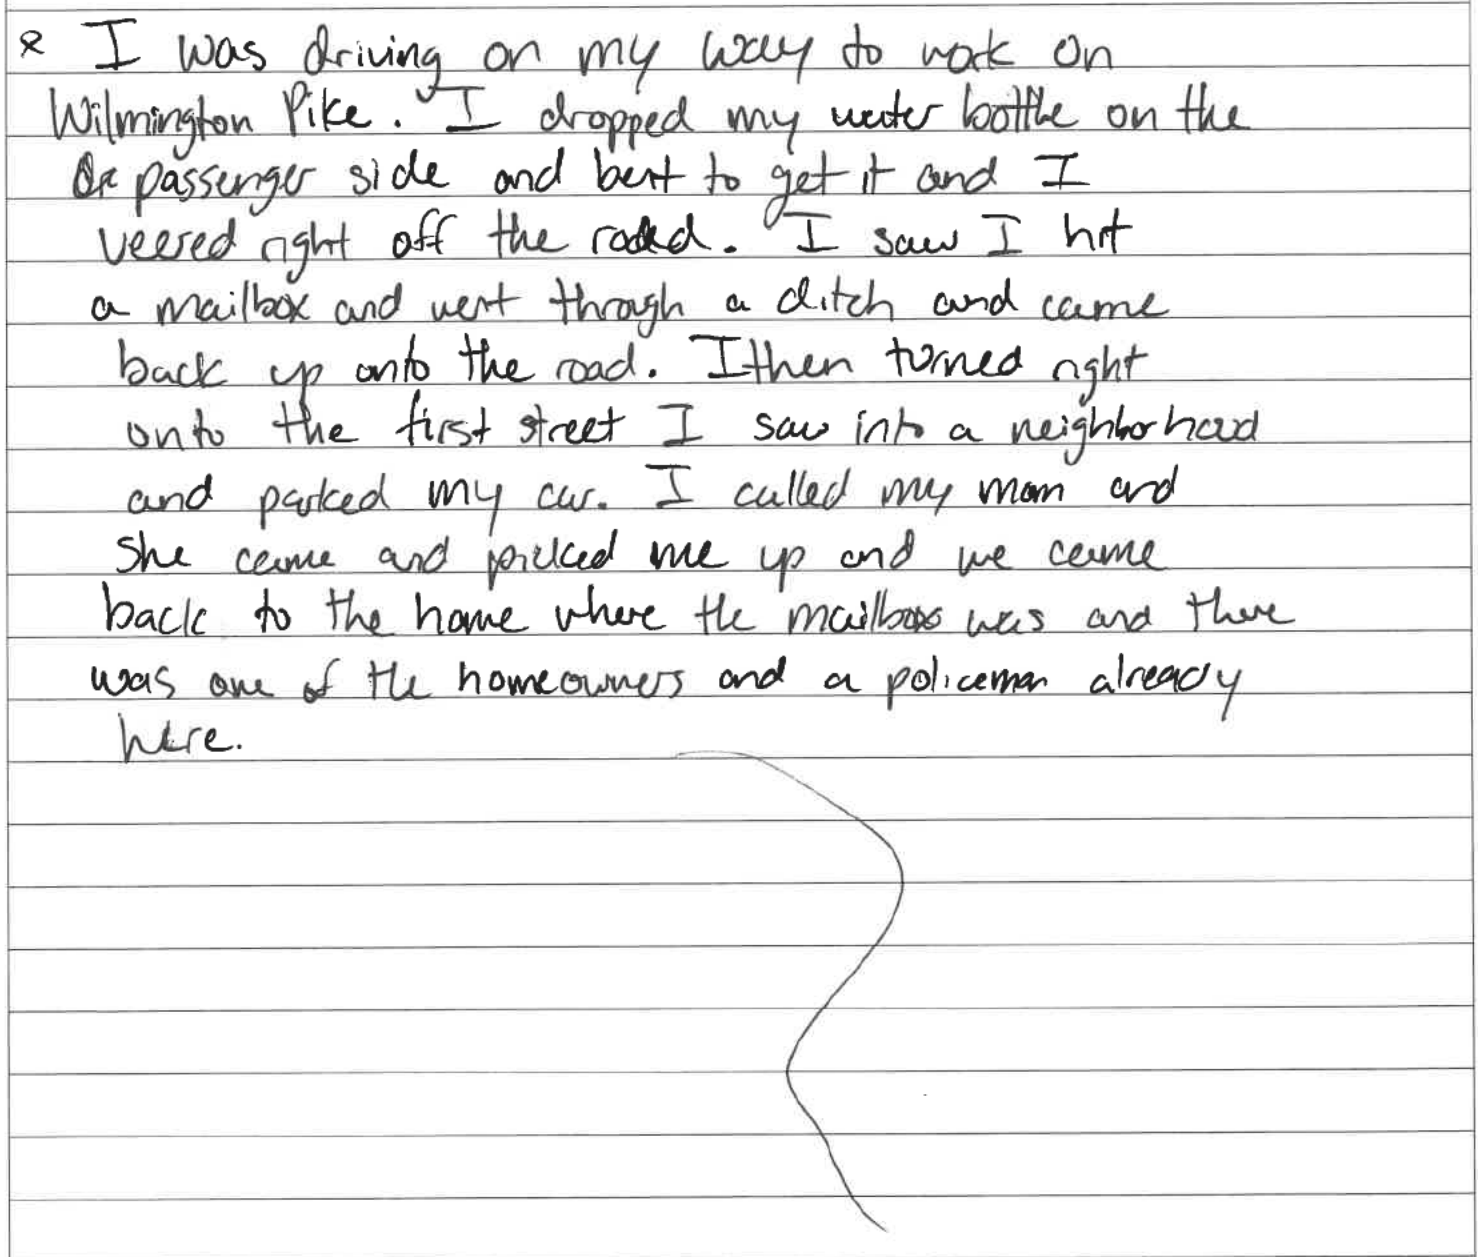 I was driving on my way to work on
Wilmington Pike. I dropped my water bottle on the
passenger side and bent to get it and I
veered right off the road. I saw I hit
a mailbox and went through a ditch and came
back up onto the road. I then turned right
onto the first street I saw into a neighborhood
and parked my car. I called my mom and
She came and picked me up and we came
back to the home where the mailbox was and there
was one of the homeowners and a policeman already
here.